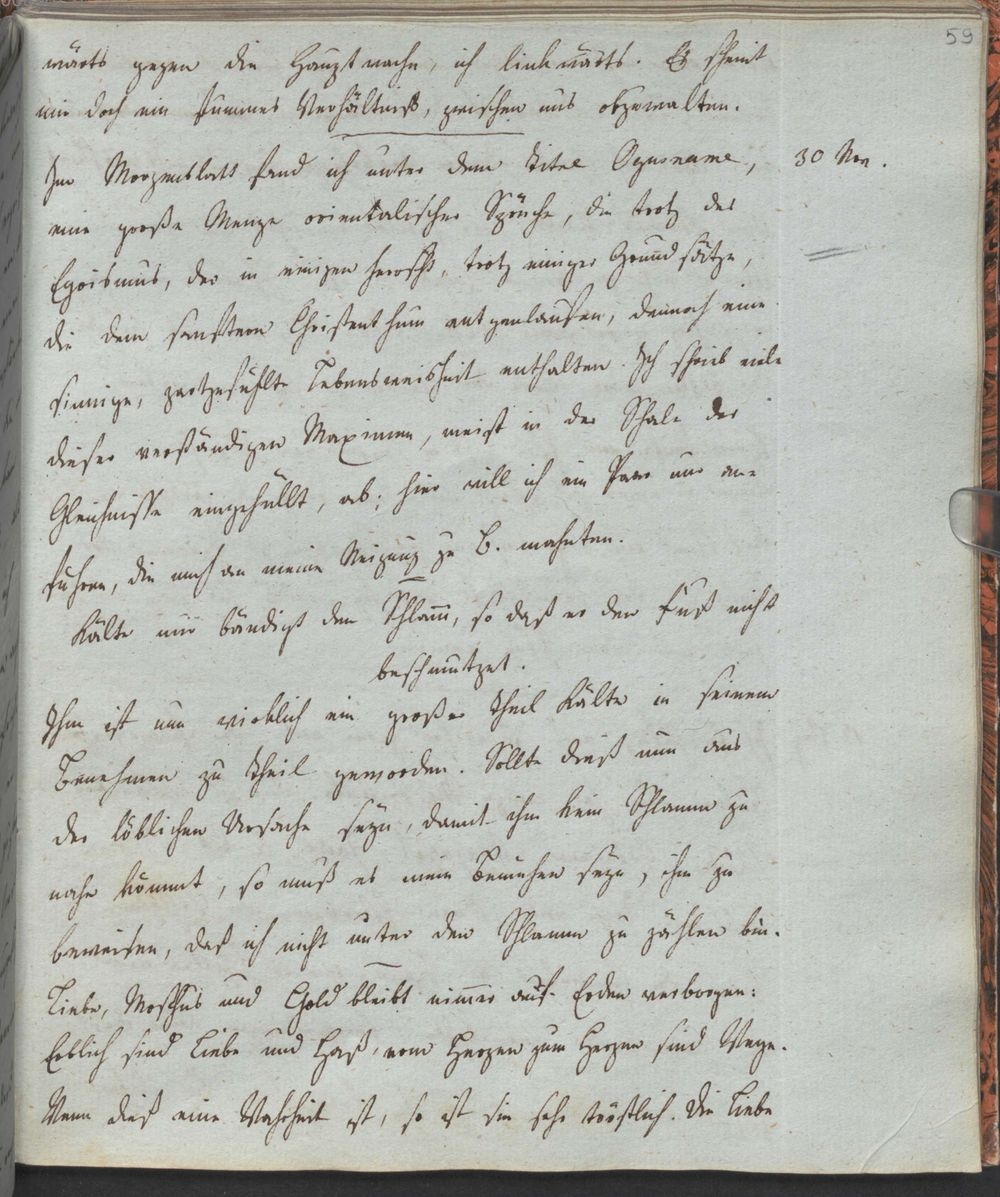 59
wärts gegen die Hauptwache, ich linkwärts. Es scheint
mir doch ein stummes Verhältniß, zwischen uns obzuwalten.
Im Morgenblatt fand ich unter dem Titel Ogusname, 30 Nov.
eine große Menge orientalischer Sprüche, die trotz des
Egoismus, der in einigen herrscht, trotz einiger Grundsätze,
die dem sanftern Christenthum entgegenlaufen, dennoch eine
sinnige, zartgefühlte Lebensweisheit enthalten. Ich schrieb viele
dieser verständigen Maximen, meist in der Schale der
Gleichnisse eingehüllt, ab; hier will ich ein Paar nur an=
führen, die mich an meine Neigung zu B. mahnten.
Kälte nur bändigt den Schlam̄, so daß er den Fuß nicht
beschmutzet.
Ihm ist nun wirklich ein großer Theil Kälte in seinem
Benehmen zu Theil geworden. Sollte dieß nun aus
der löblichen Ursache seyn, damit ihm kein Schlamm zu
nahe kömmt, so muß es mein Bemühen seyn, ihm zu
beweisen, daß ich nicht unter den Schlamm zu zählen bin.
Liebe, Moschus und Gold bleibt nimmer auf Erden verborgen:
Erblich sind Liebe und Haß, vom Herzen zum Herzen sind Wege.
Wenn dieß eine Wahrheit ist, so ist sie sehr tröstlich. Die Liebe